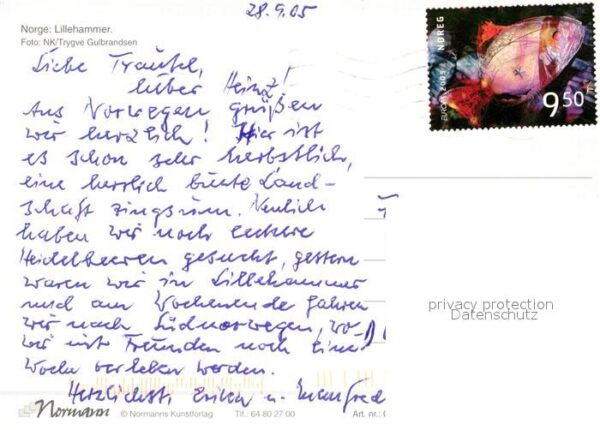 28.9.05
Norge: Lillehammer.
Foto: NK/Trygve Gulbrandsen
NOREG
EUROPA 2005
9.50
Liebe Trautel,
lieber Heinz!
Aus Norwegen grüßen
wir herzlich! Hier ist
es schon sehr herbstlich,
eine herrlich bunte Land-
schaft ringsum. Neulich
haben wir noch leckere
Heidelbeeren gesucht, gestern
waren wir in Lillehammer
und am Wochenende fahren
wir nach Südnorwegen, wo
wir mit Freunden noch eine
Woche verleben werden.
Herzlichst, u. Manfred
privacy protection
Datenschutz
Normann
© Normanns Kunstforlag Tlf.: 64 80 27 00 Art. nr.: